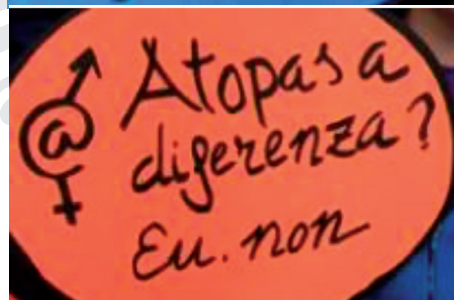 @ Atopas a
diferenza?
Eu. non